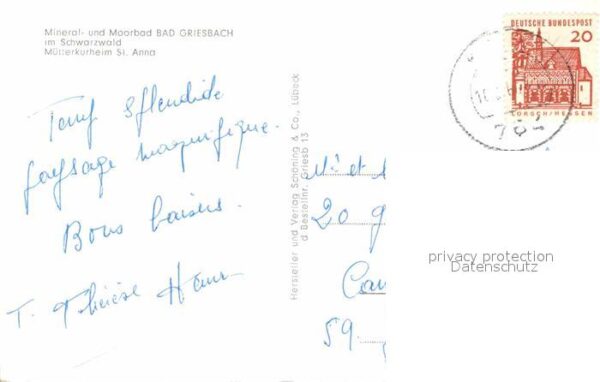 Mineral- und Moorbad BAD GRIESBACH
im Schwarzwald
Mütterkurheim St. Anna
Temps splendide
paysage magnifique.
Bons baisers.
T. Thérèse
Hersteller und Verlag Schöning & Co., Lübeck
d Bestellnr. Griesb 13
DEUTSCHE BUNDESPOST
20
LORSCH/HESSEN
et
20 g
Cam
59.
privacy protection
Datenschutz